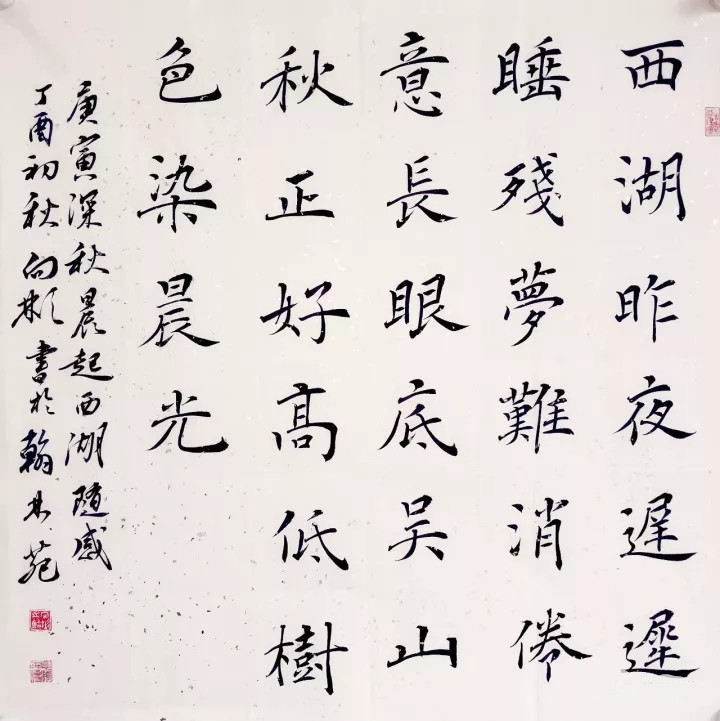 西湖昨夜遲遲
睡殘夢難消倦
意長眼底吴山
秋正好高低樹
色染晨光
庚寅深秋晨起西湖随感
丁酉初秋向彬書於翰林苑